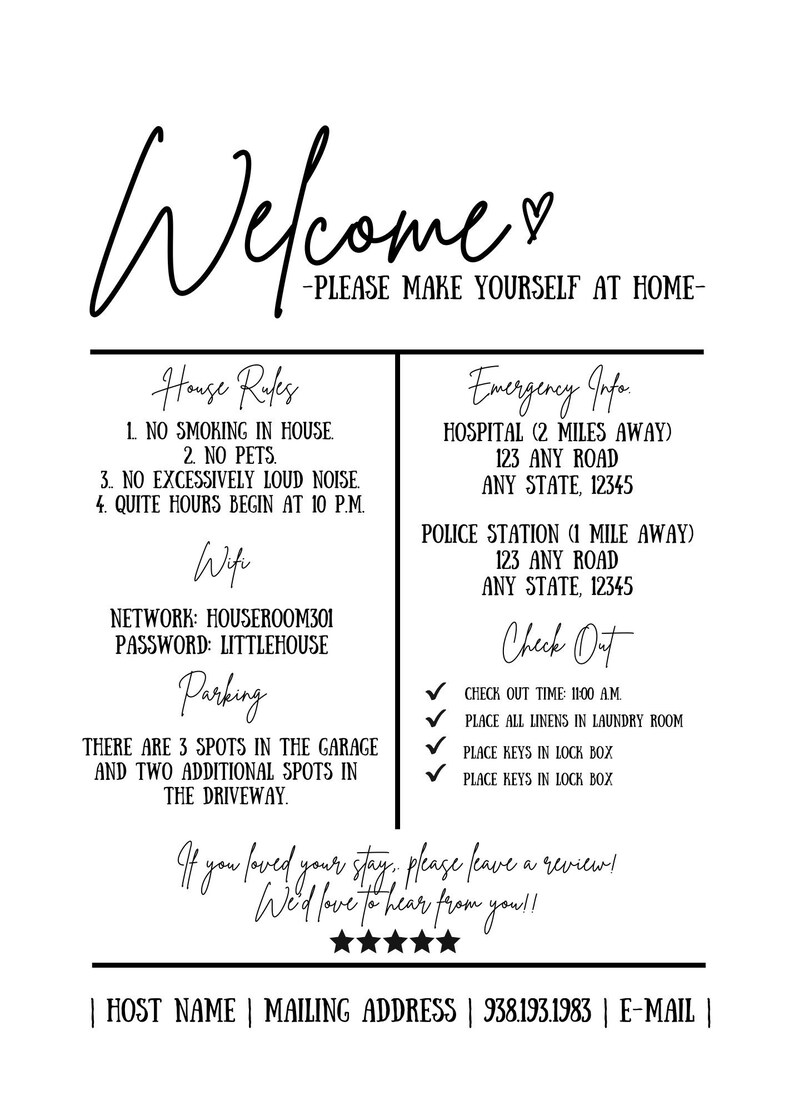 Welcome
-PLEASE MAKE YOURSELF AT HOME-
House Rules
1.. NO SMOKING IN HOUSE.
2. NO PETS.
3.. NO EXCESSIVELY LOUD NOISE.
4. QUITE HOURS BEGIN AT 10 P.M.
Wifi
NETWORK: HOUSEROOM301
PASSWORD: LITTLEHOUSE
Parking
THERE ARE 3 SPOTS IN THE GARAGE
AND TWO ADDITIONAL SPOTS IN
THE DRIVEWAY.
Emergency Info.
HOSPITAL (2 MILES AWAY)
123 ANY ROAD
ANY STATE, 12345
POLICE STATION (1 MILE AWAY)
123 ANY ROAD
ANY STATE, 12345
Check Out
CHECK OUT TIME: 11:00 A.M.
PLACE ALL LINENS IN LAUNDRY ROOM
PLACE KEYS IN LOCK BOX
PLACE KEYS IN LOCK BOX
If you loved your stay,. please leave a review!
We'd love to hear from you!!
| HOST NAME | MAILING ADDRESS | 938.193.1983 | E-MAIL |